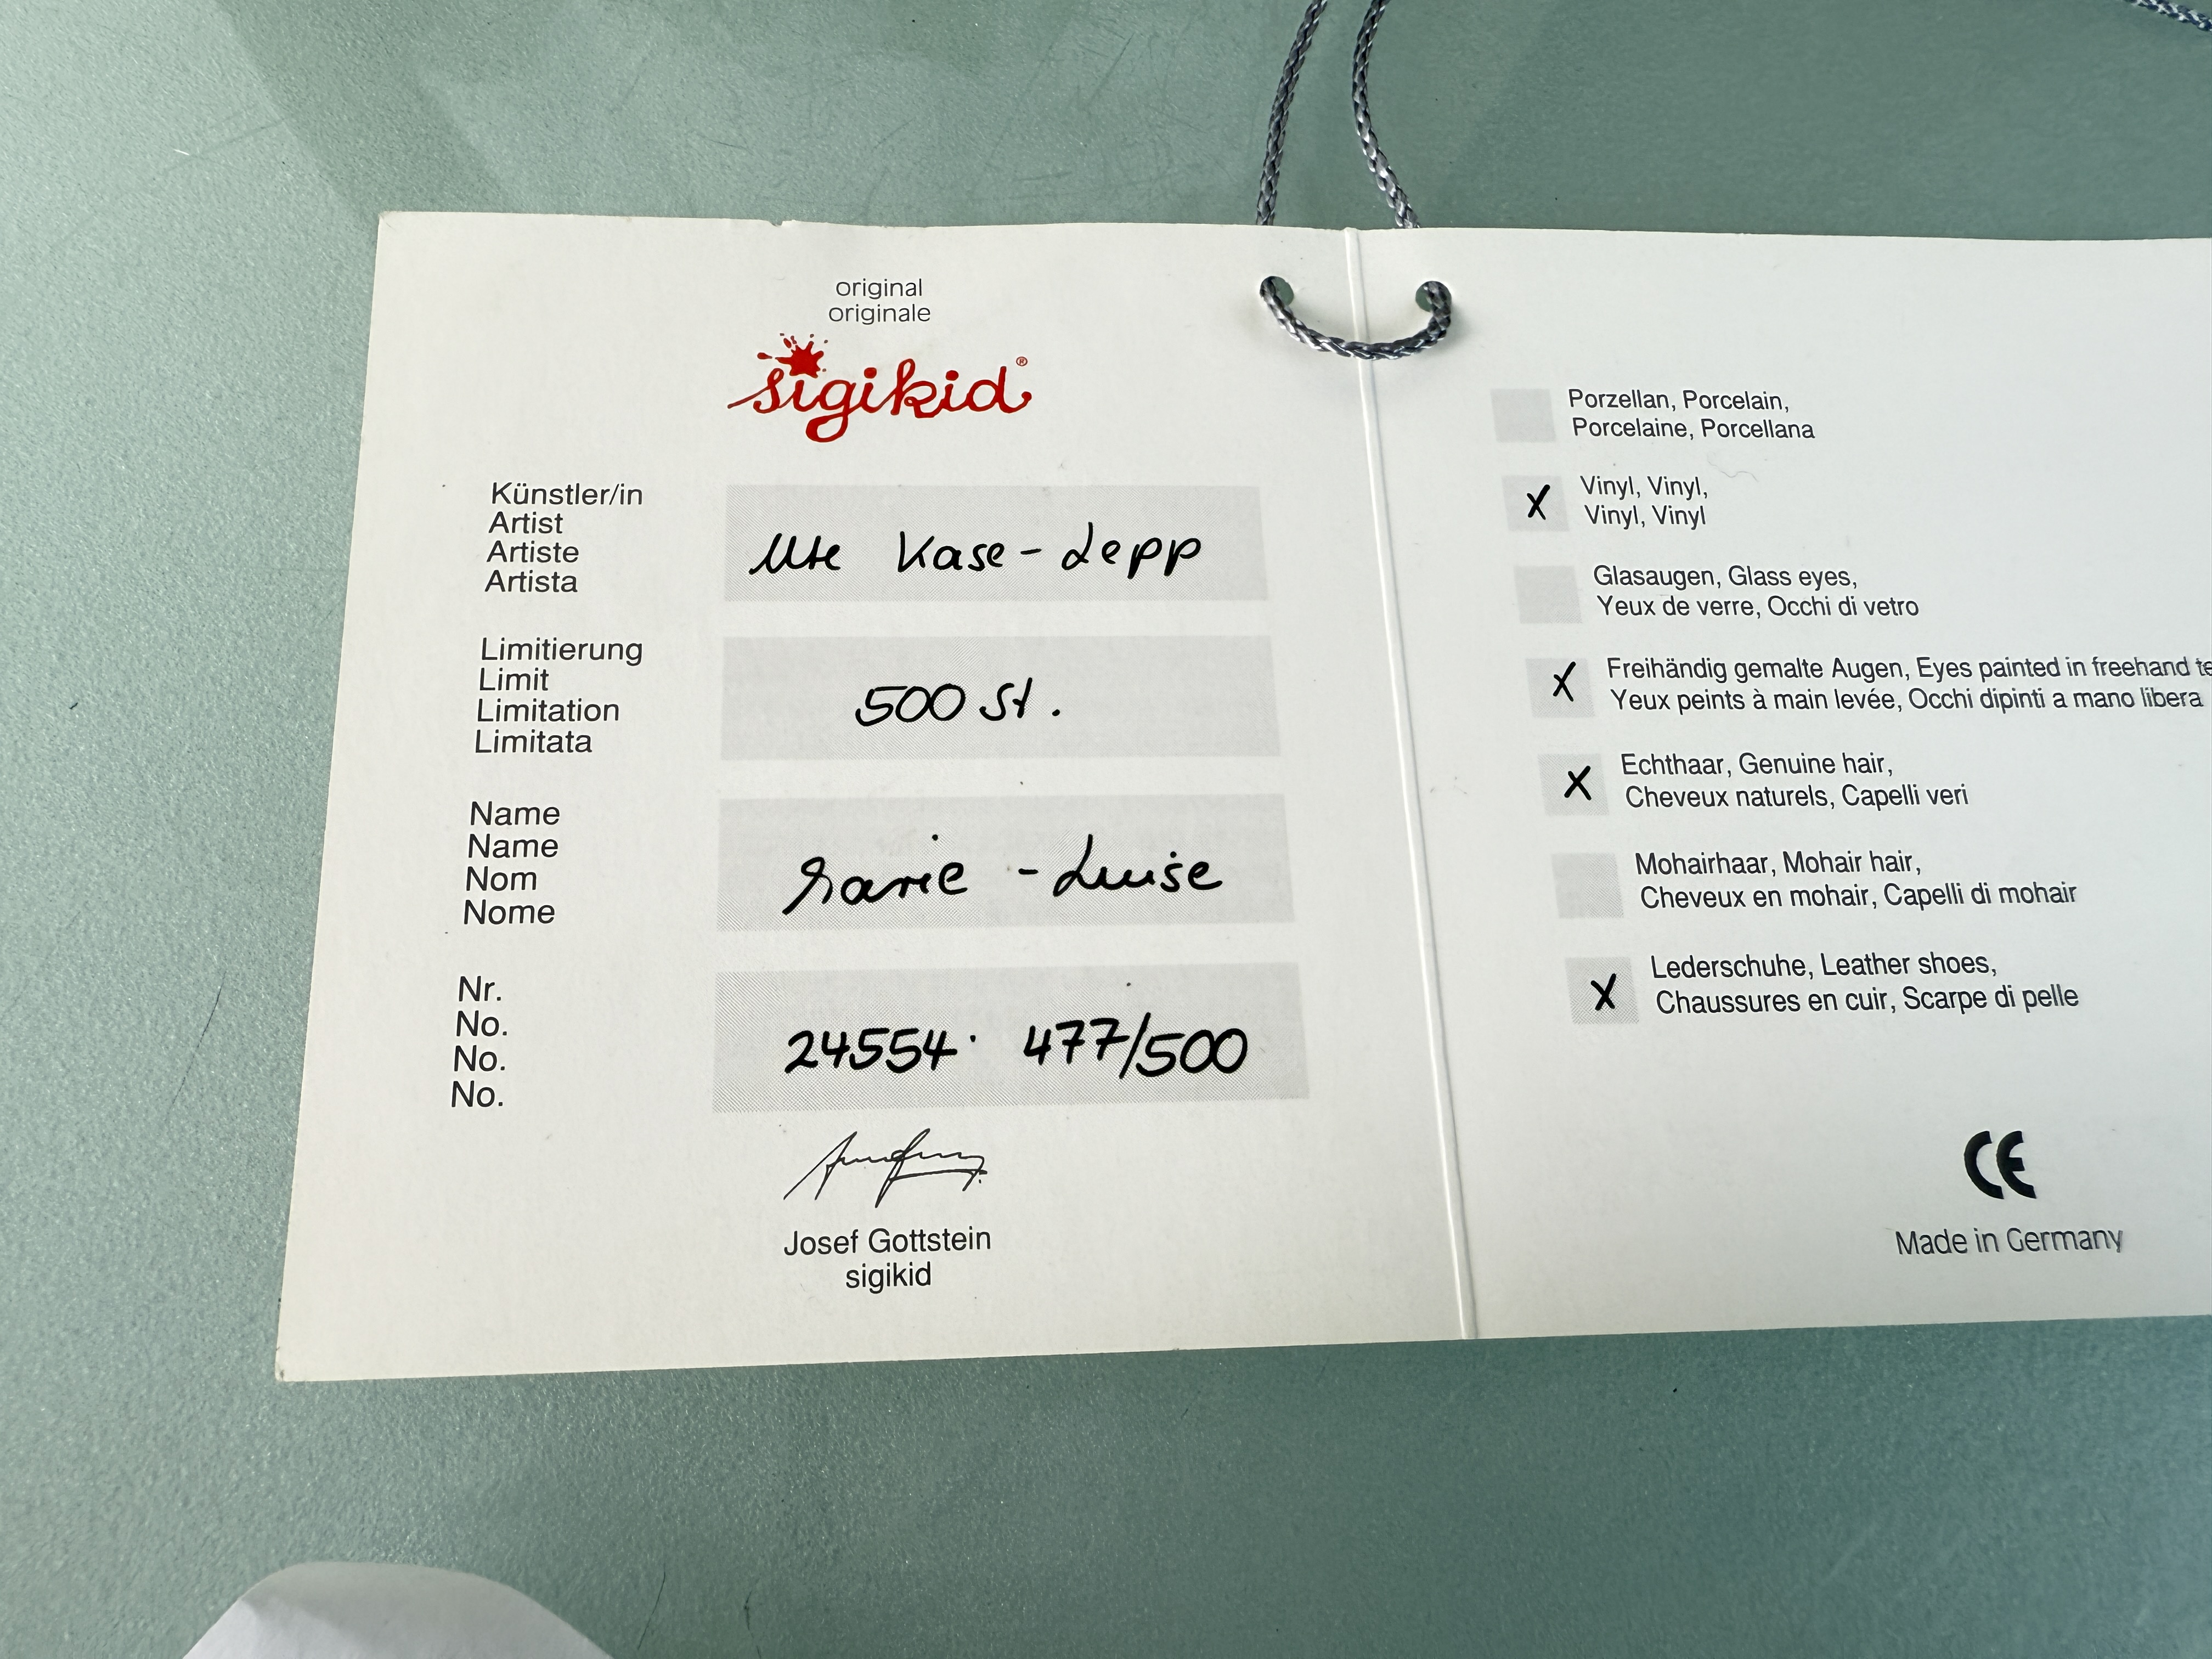 original
originale
sigikid®
Künstler/in
Artist
Artiste
Artista
Ute Kase-Lepp
Limitierung
Limit
Limitation
Limitata
500 St.
Name
Name
Nom
Nome
Marie-Luise
Nr.
No.
No.
No.
24554 · 477/500
Josef Gottstein
sigikid
Porzellan, Porcelain,
Porcelaine, Porcellana
X Vinyl, Vinyl,
Vinyl, Vinyl
Glasaugen, Glass eyes,
Yeux de verre, Occhi di vetro
X Freihändig gemalte Augen, Eyes painted in freehand te
Yeux peints à main levée, Occhi dipinti a mano libera
X Echthaar, Genuine hair,
Cheveux naturels, Capelli veri
Mohairhaar, Mohair hair,
Cheveux en mohair, Capelli di mohair
X Lederschuhe, Leather shoes,
Chaussures en cuir, Scarpe di pelle
CE
Made in Germany